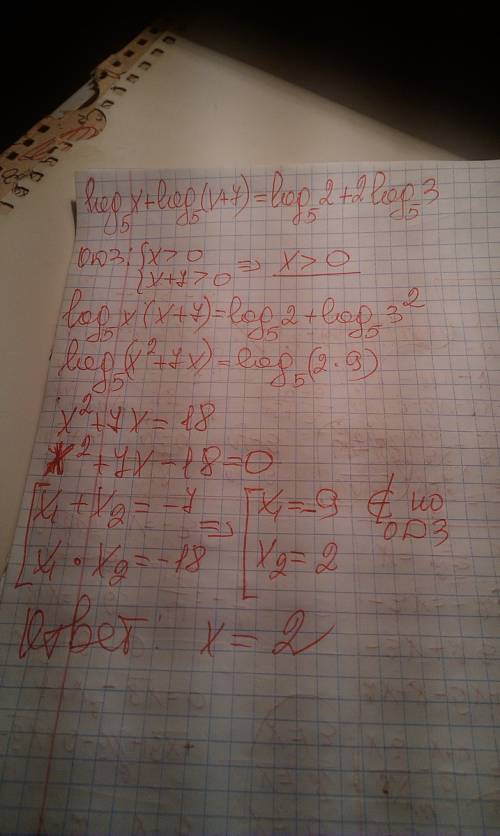 log₅x+log₅(x+7)=log₅2+2log₅3
ОДЗ: {x>0
{x+7>0 ⇒ x>0
log₅x(x+7)=log₅2+log₅3²
log₅(x²+7x)=log₅(2·9)
x²+7x=18
x²+7x-18=0
[x₁+x₂=-7 ⇒ [x₁=-9 ∉ по ОДЗ
[x₁·x₂=-18 [x₂=2
Ответ: x=2